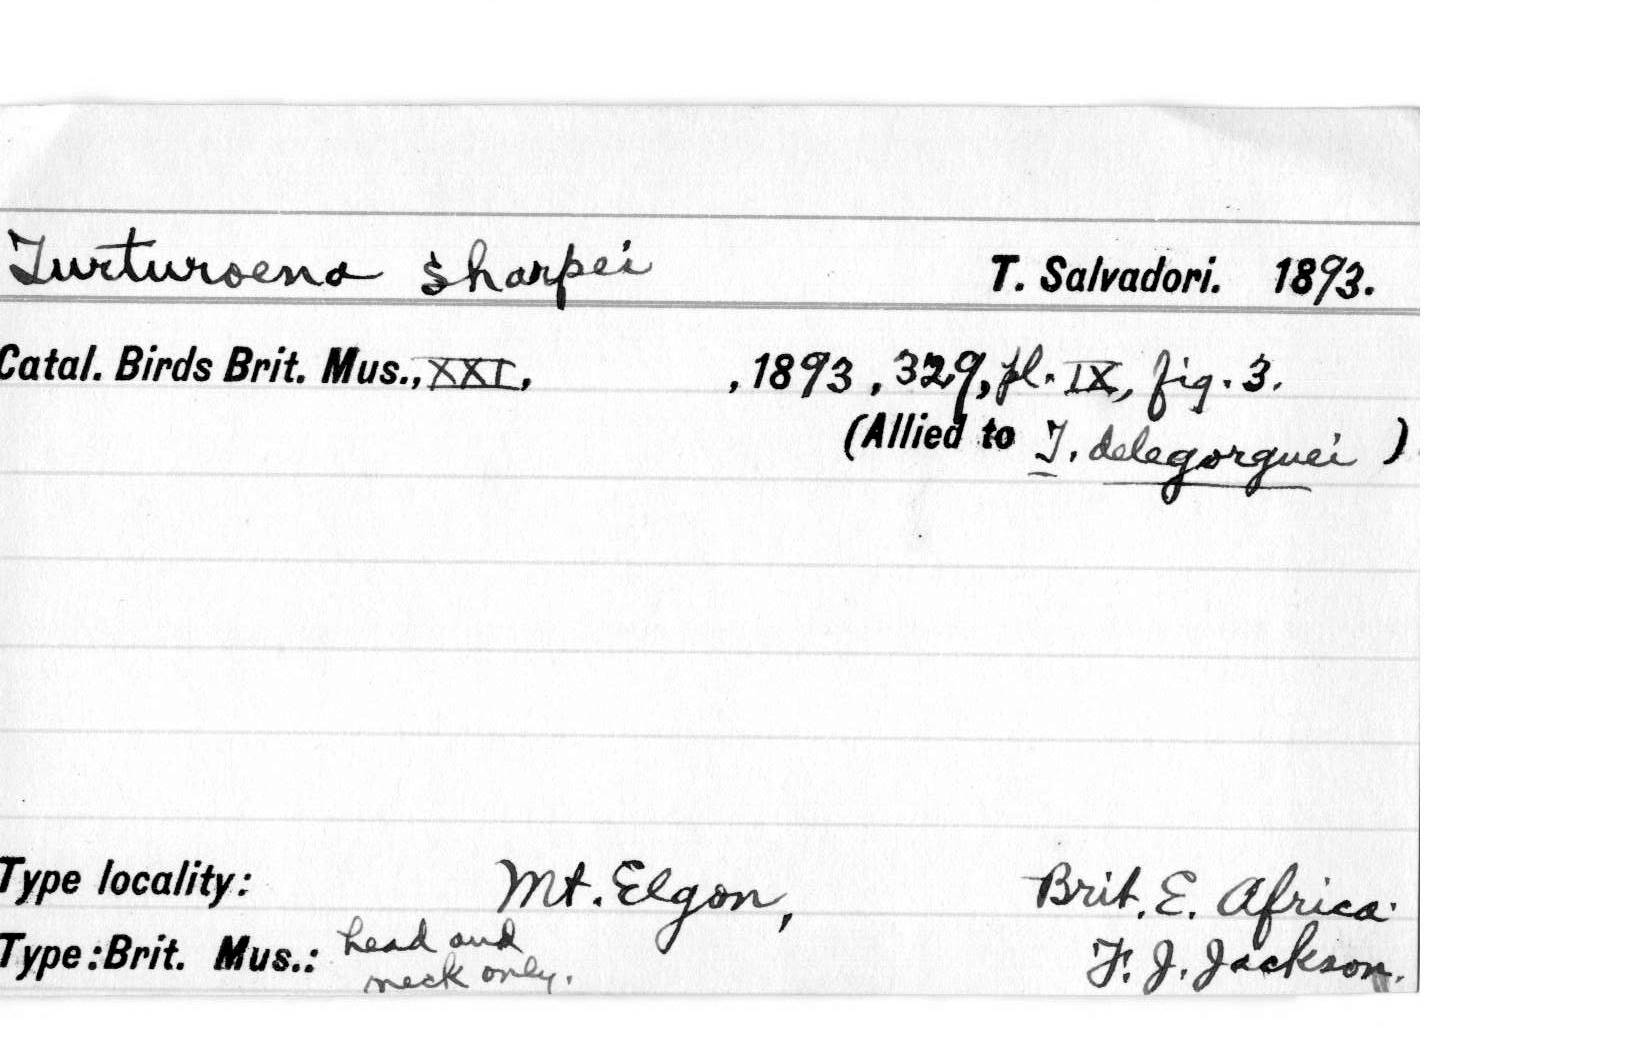 Turturoena sharpei T. Salvadori. 1893.
Catal. Birds Brit. Mus., XXI, , 1893, 329, pl. IX, fig. 3.
(Allied to T. delegorguei )
Type locality: Mt. Elgon, Brit. E. Africa.
Type: Brit. Mus.: head and neck only. F. J. Jackson.